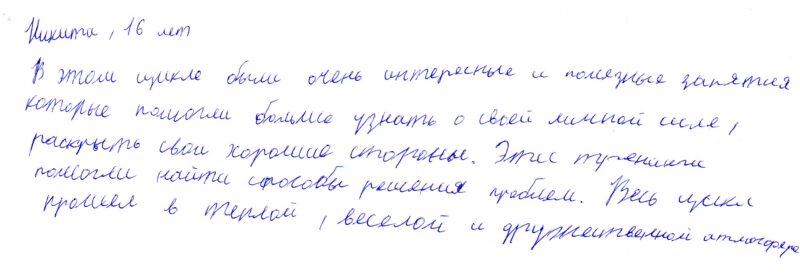 Никита, 16 лет
В этом цикле были очень интересные и полезные занятия
которые помогли больше узнать о своей личной силе,
раскрыть свои хорошие стороны. Этис тренинги
помогли найти способы решения проблем. Весь цикл
прошел в теплой, веселой и дружественной атмосфере